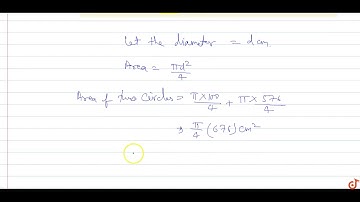 Let the diameter = d cm
Area = πd²/4
Area of two Circles = π×100/4 + π×576/4
⇒ π/4 (676) cm²